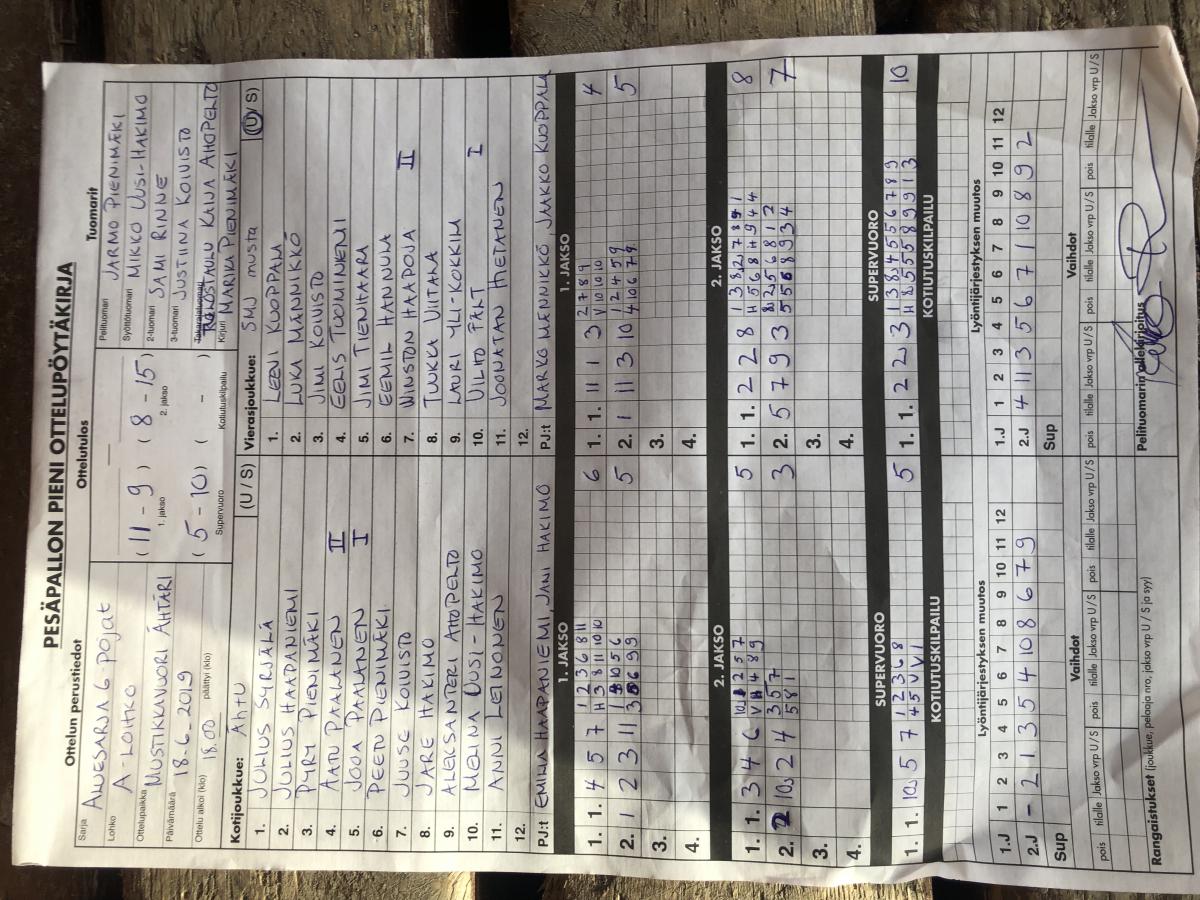 PESÄPALLON PIENI OTTELUPÖYTÄKIRJA
Ottelun perustiedot
Sarja ALUESARJA G-POJAT
Lohko A-LOHKO
Ottelupaikka MUSTIKKAVUORI ÄHTÄRI
Päivämäärä 18.6.2019
Ottelu alkoi (klo) 18.00 päättyi (klo)
Ottelutulos
( 11 - 9 ) ( 8 - 15 )
1. jakso 2. jakso
( 5 - 10 ) ( - )
Supervuoro Kotiutuskilpailu
Tuomarit
Pelituomari JARMO PIENIMÄKI
Syöttötuomari MIKKO UUSI-HAKIMO
2-tuomari SAMI RINNE
3-tuomari JUSTIINA KOIVISTO
KAIJA AHOPELTO
Kirjuri MARIKA PIENIMÄKI
Kotijoukkue: Ähtu (U / S)
1. JULIUS SYRJÄLÄ
2. JULIUS HAAPANIEMI
3. PYRY PIENIMÄKI
4. AATU PAALANEN II
5. JOOA PAALANEN I
6. PEETU PIENIMÄKI
7. JUUSE KOIVISTO
8. JARE HAKIMO
9. ALEKSANTERI AHOPELTO
10. MELINA UUSI-HAKIMO
11. ANNI LEINONEN
12.
PJ:t EMILIA HAAPANIEMI, JANI HAKIMO
Vierasjoukkue: SMJ musta (U / S)
1. LEEVI KUOPPALA
2. LUKA MÄNNIKKÖ
3. JIMI KOIVISTO
4. EELIS TUOMINIEMI
5. JIMI TIENHAARA
6. EEMIL HANNULA
7. WINSTON HAAPOJA II
8. TUUKKA VIITALA
9. LAURI YLI-KOKKIM
10. VILHO PÄLT I
11. JOONATAN HIETANEN
12.
PJ:t MARKO MÄNNIKKÖ JAAKKO KUOPPALA
1. JAKSO
1. 1. 4 5 7 1 2 3 6 8 11 6
H 3 8 11 10 10
2. 1 2 3 11 5
3.
4.
1. JAKSO
1. 1. 11 1 3 2 7 8 9 4
V 10 10 10
2. 1 11 3 10 1 2 4 5 9 5
4 10 6 7 9
3.
4.
2. JAKSO
1. 1. 3 4 6 5
2. 10 2 4 3 5 7 3
5 8 1
3.
4.
2. JAKSO
1. 1. 2 2 8 8
H 5 6 8 H 9 4 4
2. 5 7 9 3 8 2 5 6 8 1 2 7
3.
4.
SUPERVUORO
1. 1. 10 5 7 1 2 3 6 8 5
4 5 V V 1
KOTIUTUSKILPAILU
SUPERVUORO
1. 1. 2 2 3 10
KOTIUTUSKILPAILU
Lyöntijärjestyksen muutos
1.J 1 2 3 4 5 6 7 8 9 10 11 12
2.J - 2 1 3 5 4 10 8 6 7 9
Sup
Lyöntijärjestyksen muutos
1.J 1 2 3 4 5 6 7 8 9 10 11 12
2.J 4 11 3 5 6 7 1 10 8 9 2
Sup
Vaihdot
pois tilalle Jakso vrp U / S pois tilalle Jakso vrp U / S pois tilalle Jakso vrp U / S
Vaihdot
pois tilalle Jakso vrp U / S pois tilalle Jakso vrp U / S pois tilalle Jakso vrp U / S
Rangaistukset (joukkue, pelaaja nro, jakso vrp U / S ja syy)
Pelituomarin allekirjoitus